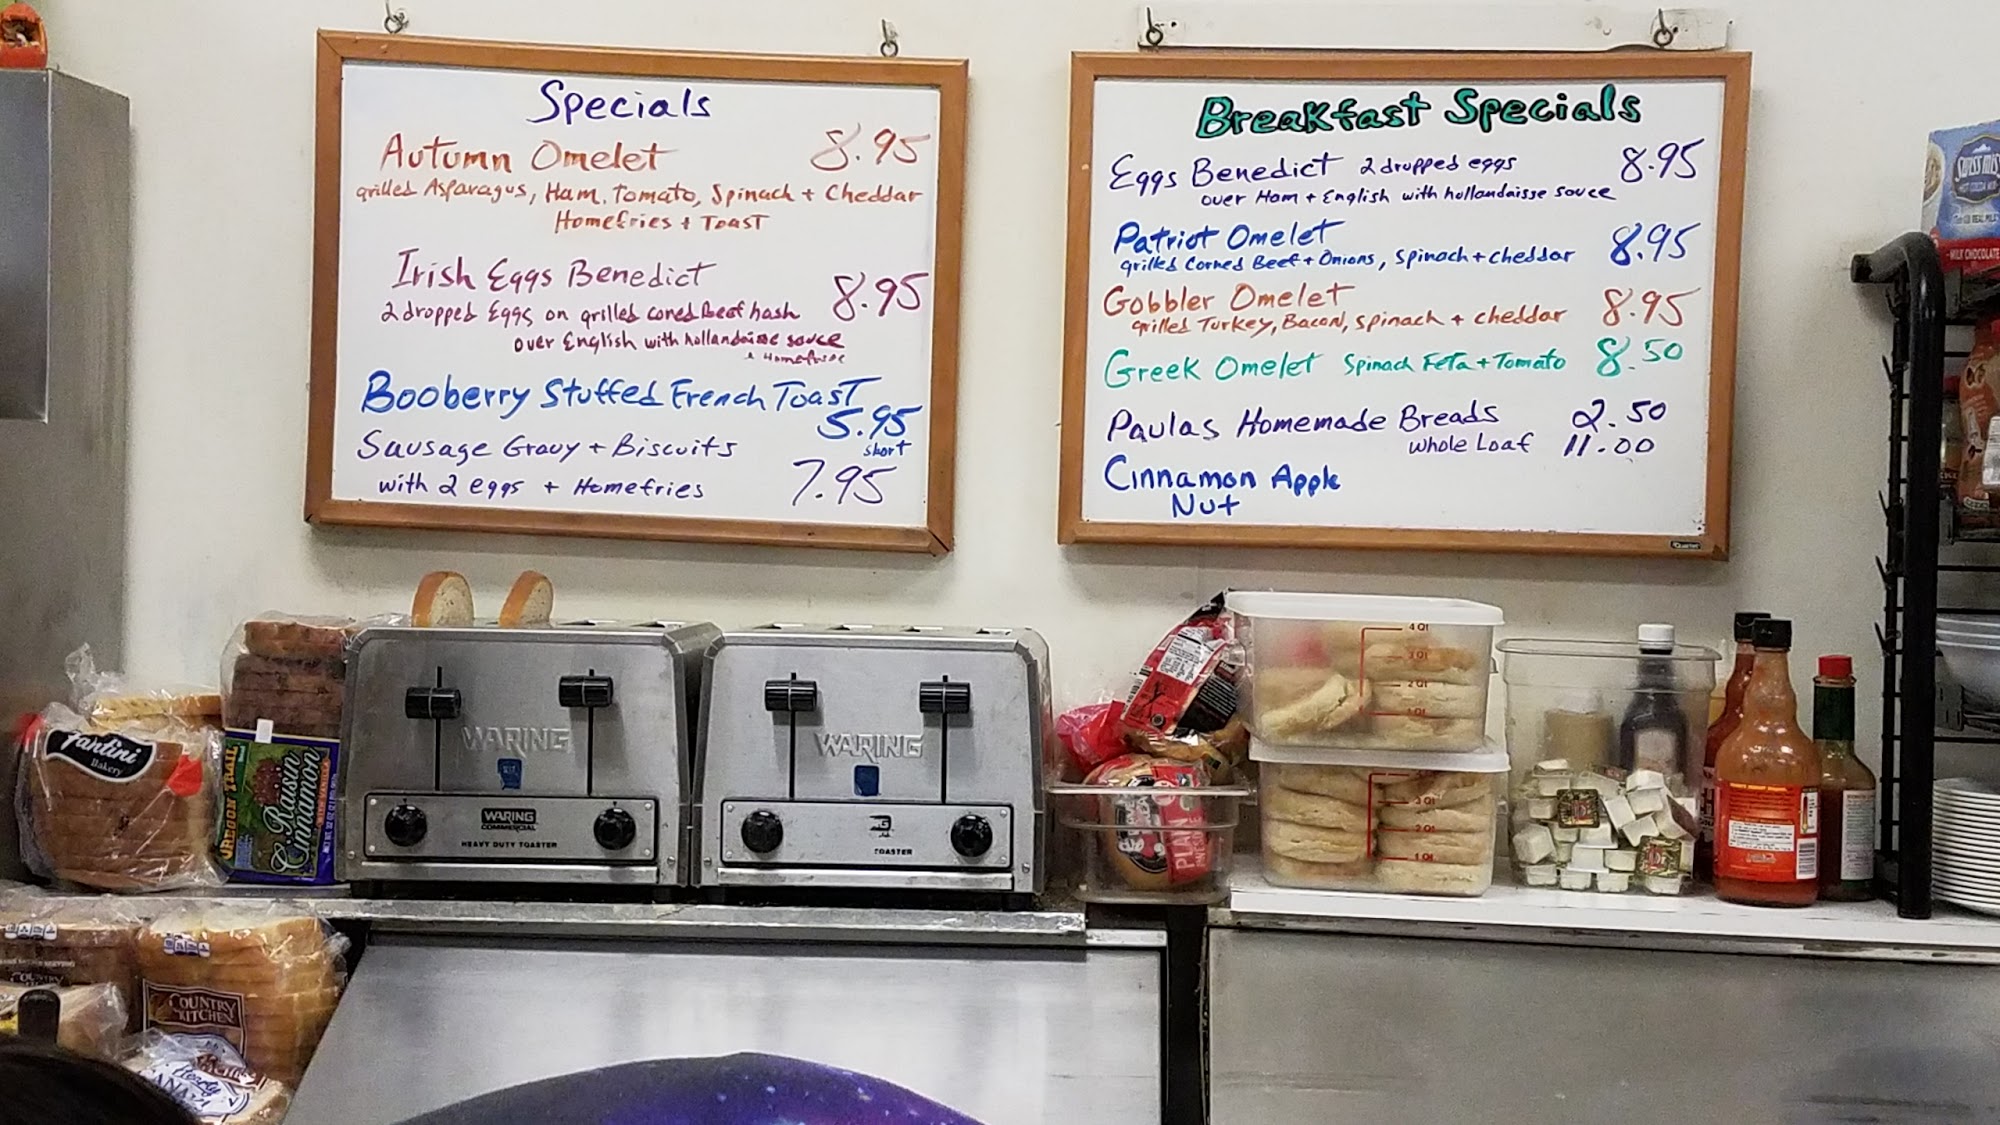 Specials
Autumn Omelet 8.95
grilled Asparagus, Ham, Tomato, Spinach + Cheddar
Homefries + Toast
Irish Eggs Benedict 8.95
2 dropped Eggs on grilled corned Beef hash
over English with hollandaisse sauce
+ Homefries
Booberry Stuffed French Toast
5.95
short
Sausage Gravy + Biscuits
with 2 eggs + Homefries 7.95
Breakfast Specials
Eggs Benedict 2 dropped eggs 8.95
over Ham + English with hollandaisse sauce
Patriot Omelet 8.95
grilled Corned Beef + Onions, Spinach + cheddar
Gobbler Omelet 8.95
grilled Turkey, Bacon, Spinach + cheddar
Greek Omelet Spinach Feta + Tomato 8.50
Paulas Homemade Breads 2.50
Whole Loaf 11.00
Cinnamon Apple
Nut
Quartet
SWISS MISS
HOT COCOA MIX
MILK CHOCOLATE
Fantini
Bakery
OREGON TRAIL
Raisin
Cinnamon
WARING
WARING
COMMERCIAL
HEAVY DUTY TOASTER
WARING
TOASTER
PLAIN
4 Qt
3 Qt
2 Qt
1 Qt
3 Qt
2 Qt
1 Qt
COUNTRY
KITCHEN
Hearty